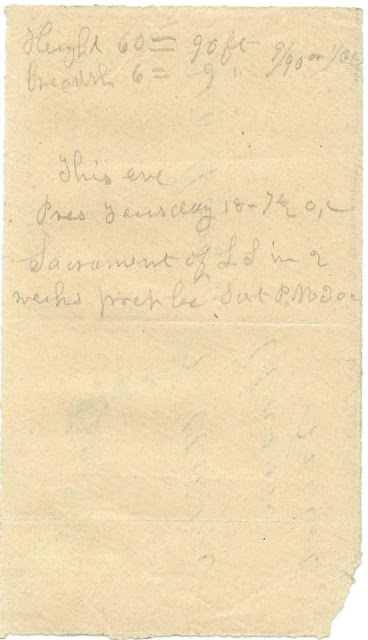 Height 60 = 90 ft 9/90 or 1/10
breadth 6 = 9 "
This eve
Pres Tuesday 18 - 7 1/2 O, c
Sacrament of L S in 2
weeks prep lec Sat P.M 3 o c